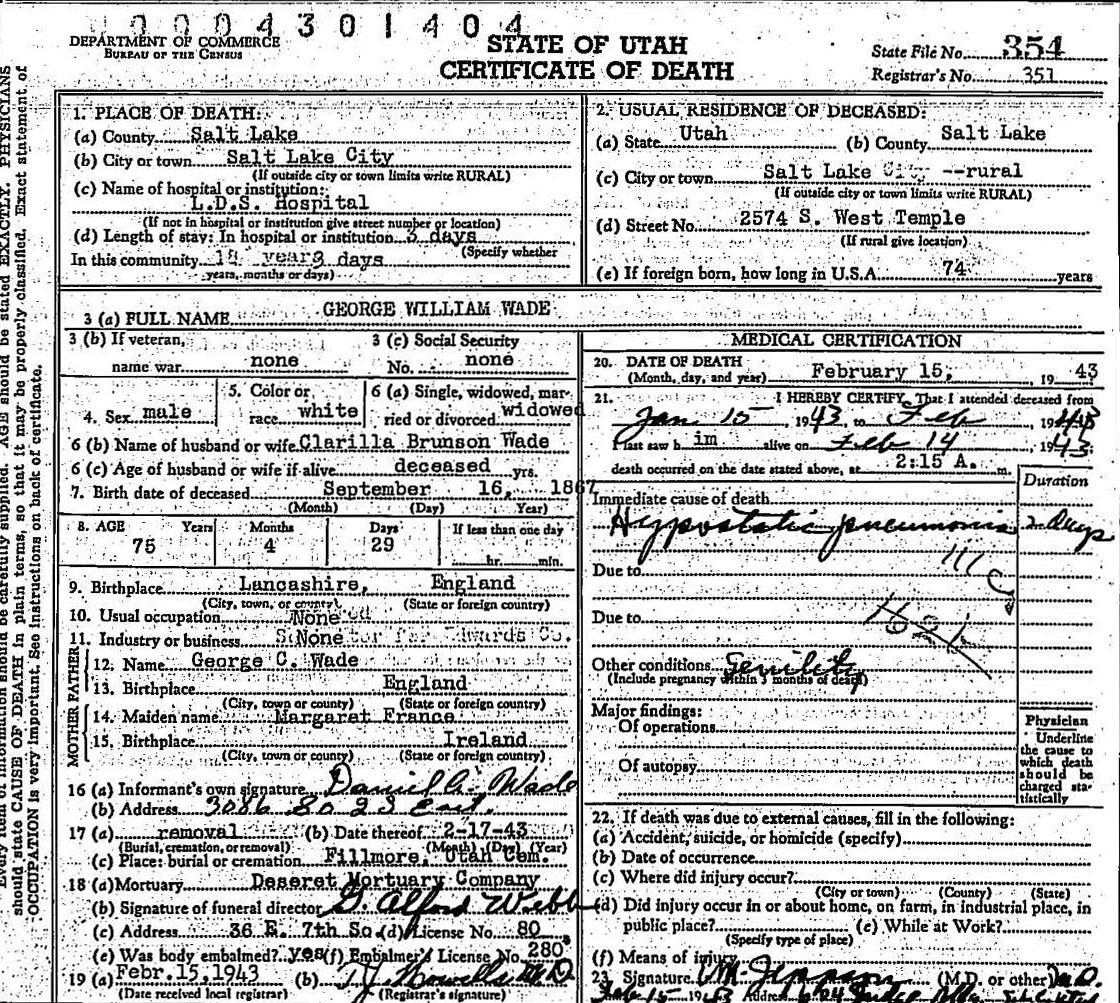 0004301404
DEPARTMENT OF COMMERCE
BUREAU OF THE CENSUS
STATE OF UTAH
CERTIFICATE OF DEATH
State File No. 354
Registrar's No. 351
PHYSICIANS
should state CAUSE OF DEATH in plain terms, so that it may be properly classified. Exact statement of
OCCUPATION is very important. See instructions on back of certificate.
1. PLACE OF DEATH:
(a) County Salt Lake
(b) City or town Salt Lake City
(If outside city or town limits write RURAL)
(c) Name of hospital or institution:
L.D.S. Hospital
(If not in hospital or institution give street number or location)
(d) Length of stay: In hospital or institution 3 days
(Specify whether
In this community years days
years, months or days)
2. USUAL RESIDENCE OF DECEASED:
(a) State Utah (b) County Salt Lake
(c) City or town Salt Lake City --rural
(If outside city or town limits write RURAL)
(d) Street No. 2574 S. West Temple
(If rural give location)
(e) If foreign born, how long in U.S.A. 74 years
3 (a) FULL NAME GEORGE WILLIAM WADE
3 (b) If veteran, name war none
3 (c) Social Security No. none
4. Sex male
5. Color or race white
6 (a) Single, widowed, married or divorced widowed
6 (b) Name of husband or wife Clarilla Brunson Wade
6 (c) Age of husband or wife if alive deceased yrs.
7. Birth date of deceased September 16, 1867
(Month) (Day) Year)
8. AGE Years Months Days If less than one day
75 4 29 hr. min.
9. Birthplace Lancashire, England
(City, town, or county) (State or foreign country)
10. Usual occupation None
11. Industry or business None
FATHER
12. Name George C. Wade
13. Birthplace England
(City, town or county) (State or foreign country)
MOTHER
14. Maiden name Margaret France
15. Birthplace Ireland
(City, town or county) (State or foreign country)
16 (a) Informant's own signature Daniel A. Wade
(b) Address 3086 So 23 East.
17 (a) removal (b) Date thereof 2-17-43
(Burial, cremation, or removal) (Month) (Day) (Year)
(c) Place: burial or cremation Fillmore, Utah Cem.
18 (a) Mortuary Deseret Mortuary Company
(b) Signature of funeral director G. Alford Webb
(c) Address 36 E. 7th So. (d) License No. 80
(e) Was body embalmed? yes (f) Embalmer's License No. 280
19 (a) Febr. 15, 1943 (b) M.D.
(Date received local registrar) (Registrar's signature)
MEDICAL CERTIFICATION
20. DATE OF DEATH
(Month, day, and year) February 15, , 19 43
21. I HEREBY CERTIFY, That I attended deceased from
Jan 15 1943, to Feb , 1943
last saw h im alive on Feb 14 , 1943
death occurred on the date stated above, at 2:15 A. m.
Duration
Immediate cause of death
Hypostatic pneumonia 2 days
Due to
Due to
Other conditions Senility
(Include pregnancy within 3 months of death)
Major findings:
Of operations
Of autopsy
Physician
Underline
the cause to
which death
should be
charged sta-
tistically
22. If death was due to external causes, fill in the following:
(a) Accident, suicide, or homicide (specify)
(b) Date of occurrence
(c) Where did injury occur?
(City or town) (County) (State)
(d) Did injury occur in or about home, on farm, in industrial place, in
public place? (e) While at Work?
(Specify type of place)
(f) Means of injury
23. Signature (M.D. or other) M.D.
Feb 15 1943 Address